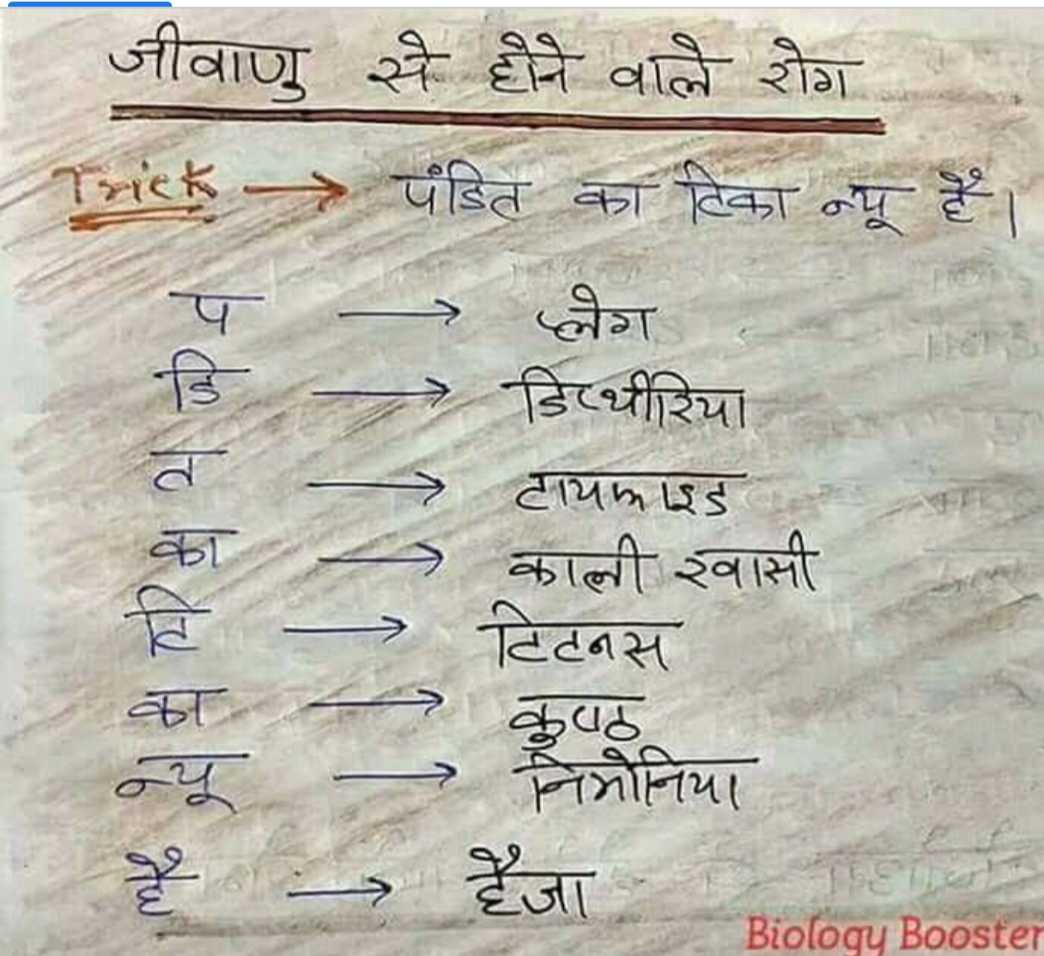 जीवाणु से होने वाले रोग
Trick → पंडित का टिका न्यू है।
प → प्लेग
डि → डिप्थीरिया
त → टायफाइड
का → काली खासी
टि → टिटनस
का → कुष्ठ
न्यू → निमोनिया
है → हैजा
Biology Booster